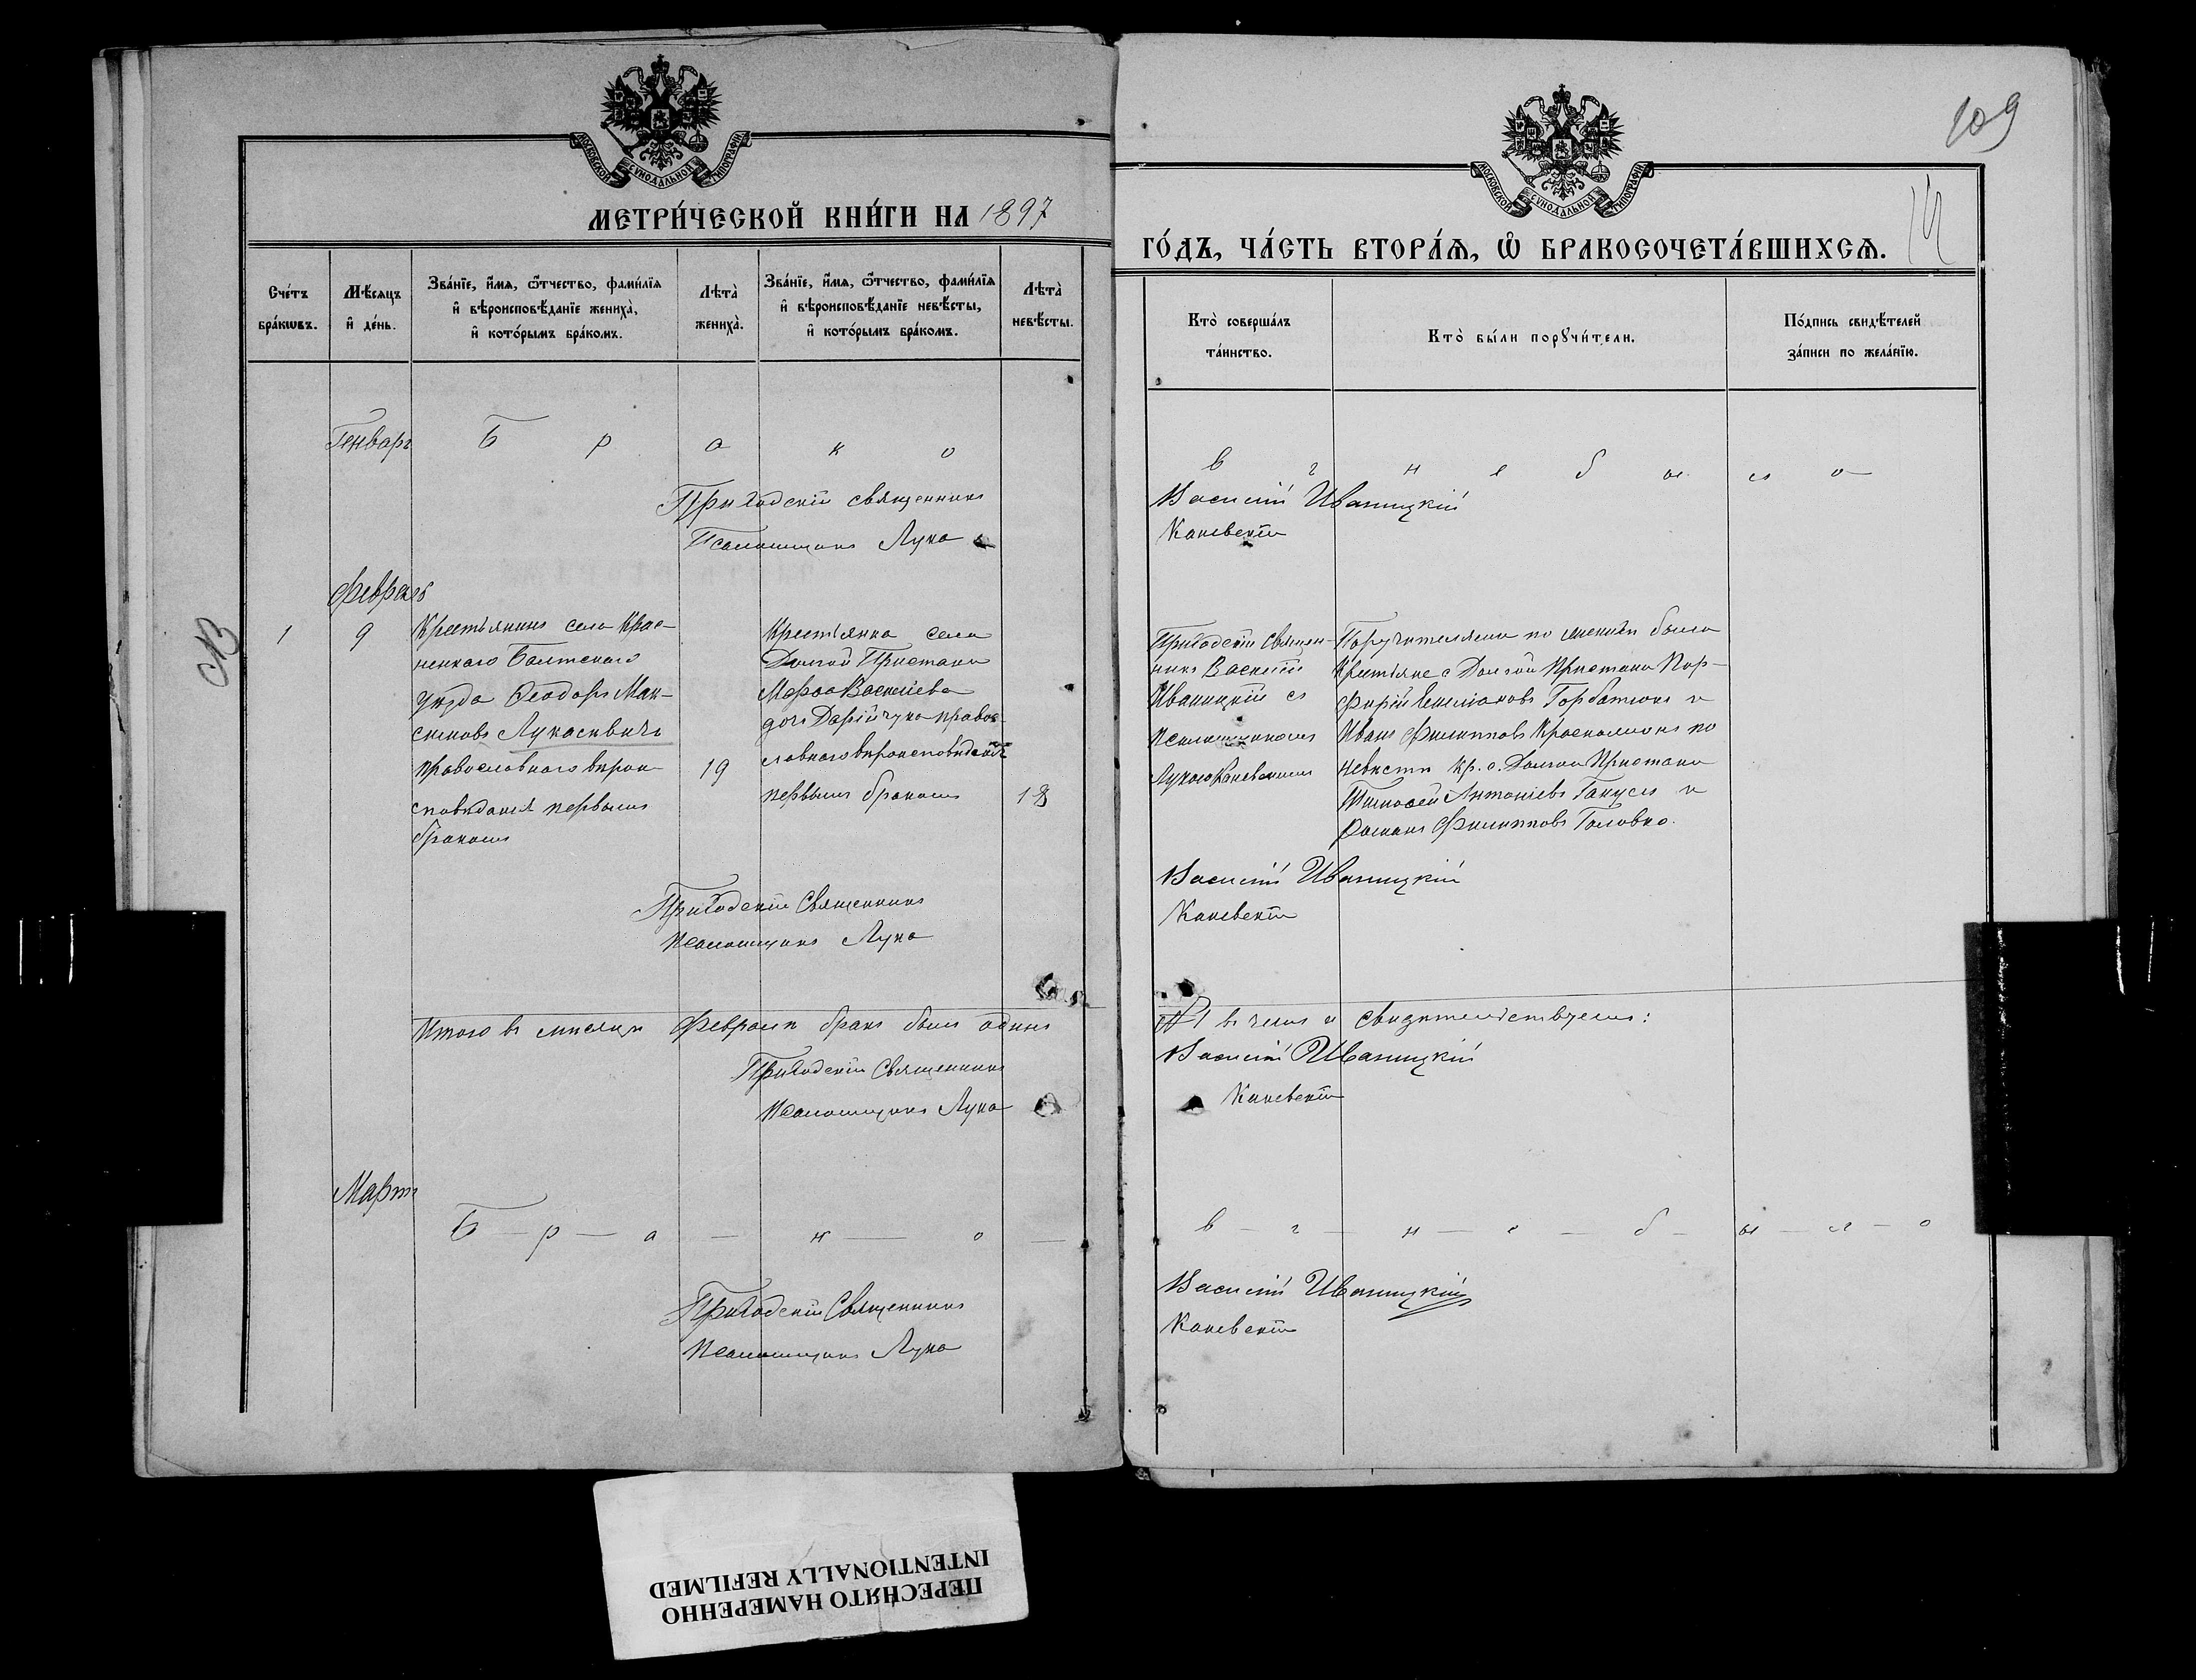 109
14
МОСКОВСКОЙ СѴНОДАЛЬНОЙ ТИПОГРАФІИ
МЕТРИ́ЧЕСКОЙ КНИ́ГИ НА 1897
МОСКОВСКОЙ СѴНОДАЛЬНОЙ ТИПОГРАФІИ
ГО́ДЪ, ЧА́СТЬ ВТОРА́Ѧ, Ѽ БРАКОСОЧЕТА́ВШИХСѦ.
Сче́тъ
бра́кѡвъ.
Мѣ́сѧцъ
и҆ де́нь.
Зва́нїе, и҆́мѧ, ѻ҆́тчество, фами́лїѧ
и҆ вѣроисповѣ́данїе жениха̀,
и҆ кото́рымъ бра́комъ.
Лѣта̀
жениха̀.
Зва́нїе, и҆́мѧ, ѻ҆́тчество, фами́лїѧ
и҆ вѣроисповѣ́данїе невѣ́сты,
и҆ кото́рымъ бра́комъ.
Лѣта̀
невѣ́сты.
Кто̀ соверша́лъ
та́инство.
Кто̀ бы́ли порꙋчи́тели.
По́дпись свидѣ́телей
за́писи по жела́нїю.
Генварь
Б р а к о в ъ н е б ы л о
Приходскій священникъ Василій Иваницкій
Псаломщикъ Лука Каневскій
Февраль
1
9
Крестьянинъ села Крас-
ненкаго Балтскаго
уѣзда Ѳеодоръ Мак-
симовъ Лукасевичъ
православнаго вѣрои-
сповѣданія первымъ
бракомъ
19
Крестьянка села
Долгой Пристани
Марѳа Васильева
дочь Дарійчука правос-
лавнаго вѣроисповѣданія
первымъ бракомъ
18
Приходскій Священ-
никъ Василій
Иваницкій съ
псаломщикомъ
Лукою Каневскимъ
Поручителями по женихѣ были
Крестьяне с Долгой Пристани Пор-
фирій Горбатюкъ и
Иванъ Филипповъ по
невѣстѣ кр. с. Долгой Пристани
Тимоѳей Антоніевъ и
Романъ Филипповъ Головко.
Приходскій Священникъ Василій Иваницкій
Псаломщикъ Лука Каневскій
Итого въ мѣсяцѣ Февралѣ бракъ былъ одинъ
№ 1 въ чемъ и свидѣтельствуемъ:
Приходскій Священникъ Василій Иваницкій
Псаломщикъ Лука Каневскій
Мартъ
Б — р — а — к — о — в — ъ — н — е — б — ы — л — о
Приходскій Священникъ Василій Иваницкій
Псаломщикъ Лука Каневскій
ПЕРЕСНЯТО НАМЕРЕННО
INTENTIONALLY REFILMED